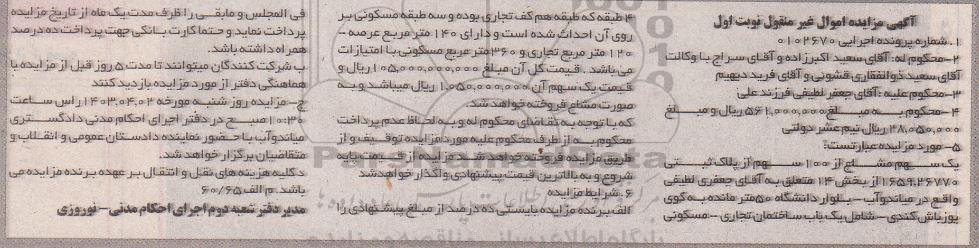 آگهی مزایده اموال غیر منقول نوبت اول
۱ـ شماره پرونده اجرایی ۰۱۰۲۶۷۰
۲-محکوم له: آقای سعید اکبرزاده و آقای سراج با وکالت
آقای سعید ذوالفقاری قشونی و آقای فرید دیهیم
۳-محکوم علیه : آقای جعفر لطیفی فرزند علی
۴- محکوم به مبلغ ۵۶۱,۰۰۰,۰۰۰ ریال و مبلغ
۲۸.۰۵۰,۰۰۰ ریال نیم عشر دولتی
۵- مورد مزایده عبارتست؟
یک سهم مشاع از ۱۰۰ سهم از پلاک ثبتی
۱۶۵۹.۲۶۷۷۰ از بخش ۱۴ متعلق به آقای جعفری لطیفی
واقع در میاندوآب - بلوار دانشگاه ۵۰متر مانده به کوی
یوزباش کندی - شامل یک باب ساختمان تجاری - مسکونی
۴ طبقه که طبقه هم کف تجاری بوده و سه طبقه مسکونی بر
روی آن احداث شده است و دارای ۱۴۰ متر مربع عرصه -
۱۲۰ متر مربع تجاری و ۳۶۰ متر مربع مسکونی با امتیازات
می باشد . قیمت کل آن مبلغ ۱۰۵,۰۰۰,۰۰۰,۰۰۰ ریال و
قیمت یک سهم آن ۱.۰۵۰,۰۰۰,۰۰۰ ریال میباشد و به
صورت مشاع فروخته خواهد شد.
که با توجه به تقاضای محکوم له و به لحاظ عدم پرداخت
محکوم به از طرف محکوم علیه مورد مزایده توقیف و از
طریق مزایده فروخته خواهد شد مزایده از قیمت پایه
شروع و به بالاترین قیمت پیشنهادی واگذار خواهد شد
۶. شرایط مزایده
الف برنده مزایده بایستی ده درصد از مبلغ پیشنهادی را
فی المجلس و مابقی را ظرف مدت یک ماه از تاریخ مزایده
پرداخت نماید و حتما کارت بانکی جهت پرداخت ده درصد
همراه داشته باشد.
ب شرکت کنندگان میتوانند تا مدت ۵ روز قبل از مزایده با
هماهنگی دفتر از مورد مزایده بازدید کنند
ج- مزایده روز شنبه مورخه ۱۴۰۳.۰۴.۰۲ راس ساعت
۱۰:۳۰ صبح در دفتر اجرای احکام مدنی دادگستری
میاندوآب با حضور نماینده دادستان عمومی و انقلاب و
متقاضیان برگزار خواهد شد.
د کلیه هزینه های نقل و انتقال بر عهده برنده مزایده می
باشد. م الف ۶۰/۶۵
مدیر دفتر شعبه دوم اجرای احکام مدنی - نوروزی